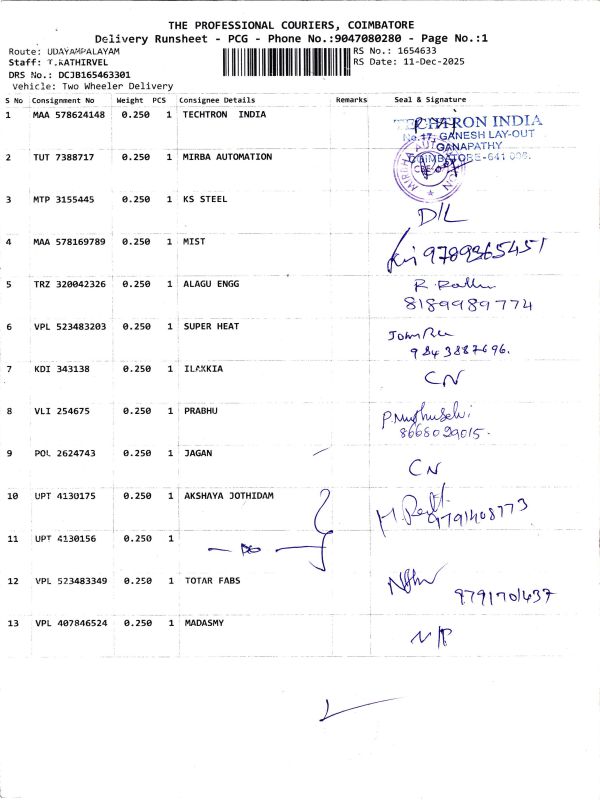 THE PROFESSIONAL COURIERS, COIMBATORE
Delivery Runsheet - PCG - Phone No.:9047080280 - Page No.:1
Route: UDAYAMPALAYAM
RS No.: 1654633
Staff: T.KATHIRVEL
RS Date: 11-Dec-2025
DRS No.: DCJB165463301
Vehicle: Two Wheeler Delivery
S No Consignment No Weight PCS Consignee Details Remarks Seal & Signature
1 MAA 578624148 0.250 1 TECHTRON INDIA
TECHTRON INDIA
No.17, GANESH LAY-OUT
GANAPATHY
COIMBATORE-641 006.
2 TUT 7388717 0.250 1 MIRBA AUTOMATION
3 MTP 3155445 0.250 1 KS STEEL
D/L
4 MAA 578169789 0.250 1 MIST
9789365451
5 TRZ 320042326 0.250 1 ALAGU ENGG
8189989774
6 VPL 523483203 0.250 1 SUPER HEAT
9843887696.
7 KDI 343138 0.250 1 ILAKKIA
CN
8 VLI 254675 0.250 1 PRABHU
8668029015.
9 POL 2624743 0.250 1 JAGAN
CN
10 UPT 4130175 0.250 1 AKSHAYA JOTHIDAM
9791408773
11 UPT 4130156 0.250 1
— Do —
12 VPL 523483349 0.250 1 TOTAR FABS
9791701437
13 VPL 407846524 0.250 1 MADASMY
N/P